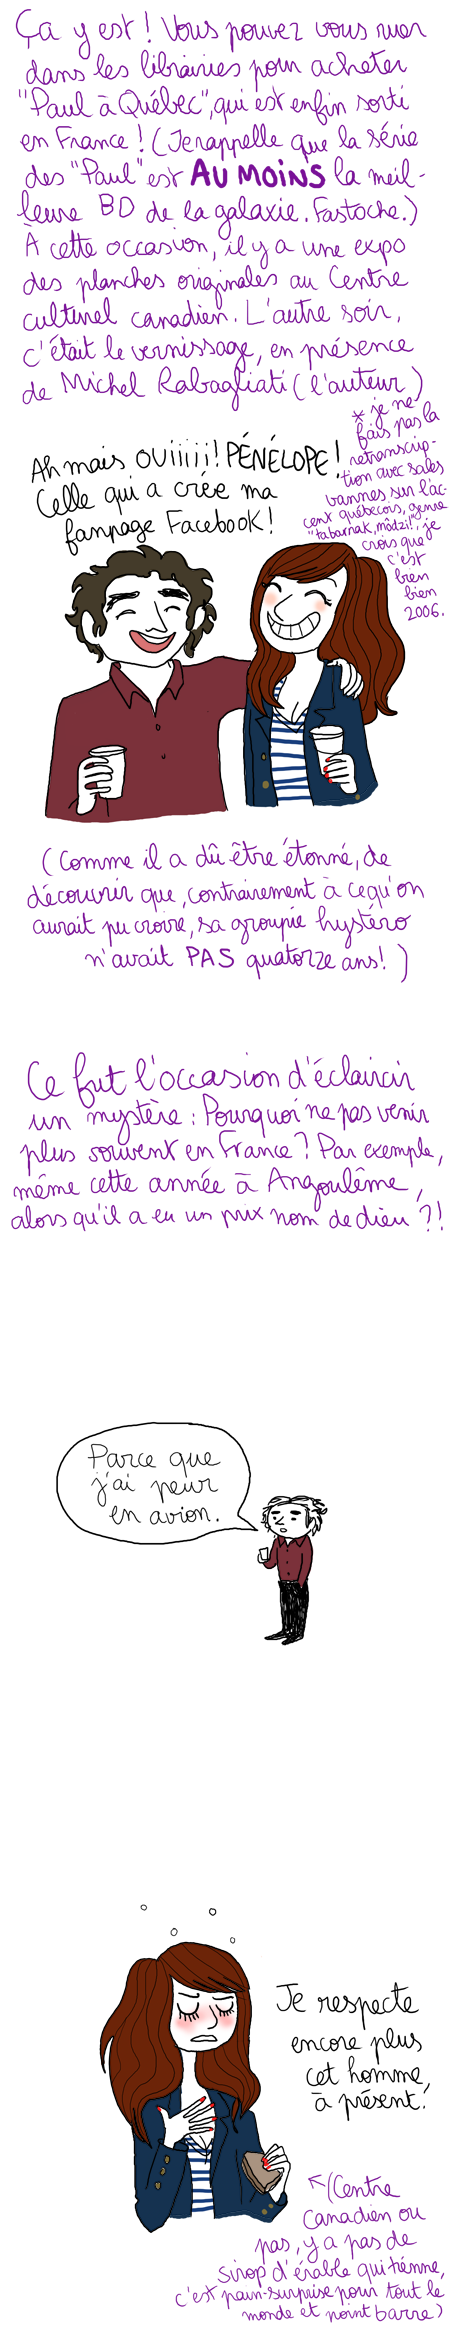 Ça y est ! Vous pouvez vous ruer
dans les librairies pour acheter
"Paul à Québec", qui est enfin sorti
en France ! (Je rappelle que la série
des "Paul" est AU MOINS la meil-
leure BD de la galaxie. Fastoche.)
À cette occasion, il y a une expo
des planches originales au Centre
culturel canadien. L'autre soir,
c'était le vernissage, en présence
de Michel Rabagliati (l'auteur)
Ah mais OUiiiii! PÉNÉLOPE!
Celle qui a créé ma
fanpage Facebook!
* je ne
fais pas la
retranscrip-
tion avec sales
vannes sur l'ac-
cent québécois, genre
"tabarnak, môdzi!", je
crois que
c'est
bien
bien
2006.
(Comme il a dû être étonné, de
découvrir que, contrairement à ce qu'on
aurait pu croire, sa groupie hystéro
n'avait PAS quatorze ans!)
Ce fut l'occasion d'éclaircir
un mystère : Pourquoi ne pas venir
plus souvent en France ? Par exemple,
même cette année à Angoulême,
alors qu'il a eu un prix nom de dieu ?!
Parce que
j'ai peur
en avion.
Je respecte
encore plus
cet homme,
à présent!
(Centre
Canadien ou
pas, y a pas de
sirop d'érable qui tienne,
c'est pain-surprise pour tout le
monde et point barre)